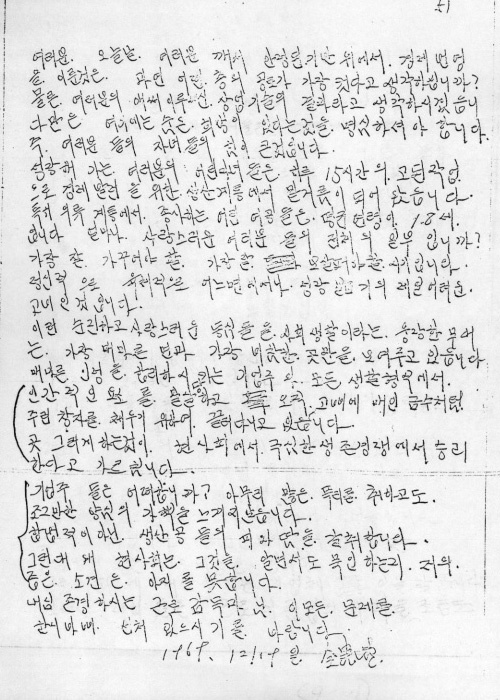 여러분. 오늘날. 여러분께서 안정된 기반 위에서. 경제 번영
을 이룬것은. 과연 어떤. 층의 공로가 가장 컷다고 생각하십니까?
물론. 여러분의 애써 이루신. 상업기술의 결과라고 생각하시겠읍니
다만은 여기에는 숨은. 희생이 있다는것을. 명심하셔야 합니다.
즉. 여러분 들의 자녀들의 힘이 큰것입니다.
성장해 가는. 여러분의 어린자녀들은. 하루 15시간의. 고된작업
으로 경제발전을 위한. 생산계통에서 밑거름이 되어 왔읍니다.
특히 의류 계통에서. 종사하는 어린 여공들은. 평균 연령이. 18세.
입니다 얼마나. 사랑스러운 여러분 들의 전체의 일부 입니까?
가장 잘. 가꾸어야 할. 가장 잘. 보살펴야 할. 시기입니다.
정신적 으로 육체적으로 어느면에서나. 성장 기의 제일 어려운.
고비인것 입니다.
이런 순진하고 사랑스러운 동심들을 사회생활이라는. 웅장한 무대
는. 가장 메마른 면과 가장 비참한. 곳만을. 보여주고 있읍니다.
메마른 인정을. 합리화시키는 기업주와. 모든 생활형식에서.
인간적인 요구를. 말살당하고 오직. 고삐에 매인 금수처럼
주린 창자를. 채우기 위하여. 끌려다니고 있읍니다.
곳 그러게 하는것이. 현사회에서. 극심한 생존경쟁에서 승리
한다고 가르칩니다.
기업주 들은 어떠합니까? 아무리 많은. 폭리를. 취하고도.
조그만한 양심의 가책을 느끼지 않읍니다.
합법적이 아닌. 생산공 들의 피와 땀을. 갈취합니다.
그런대 왜 현사회는. 그것을. 알면서도 묵인 하는지. 저의.
좁은 소견은. 아지를 못합니다.
내심 존경하시는 근로감독관 님. 이모든. 문제를.
한시바삐. 선처 있으시기를. 바랍니다.
1969. 12.19일.